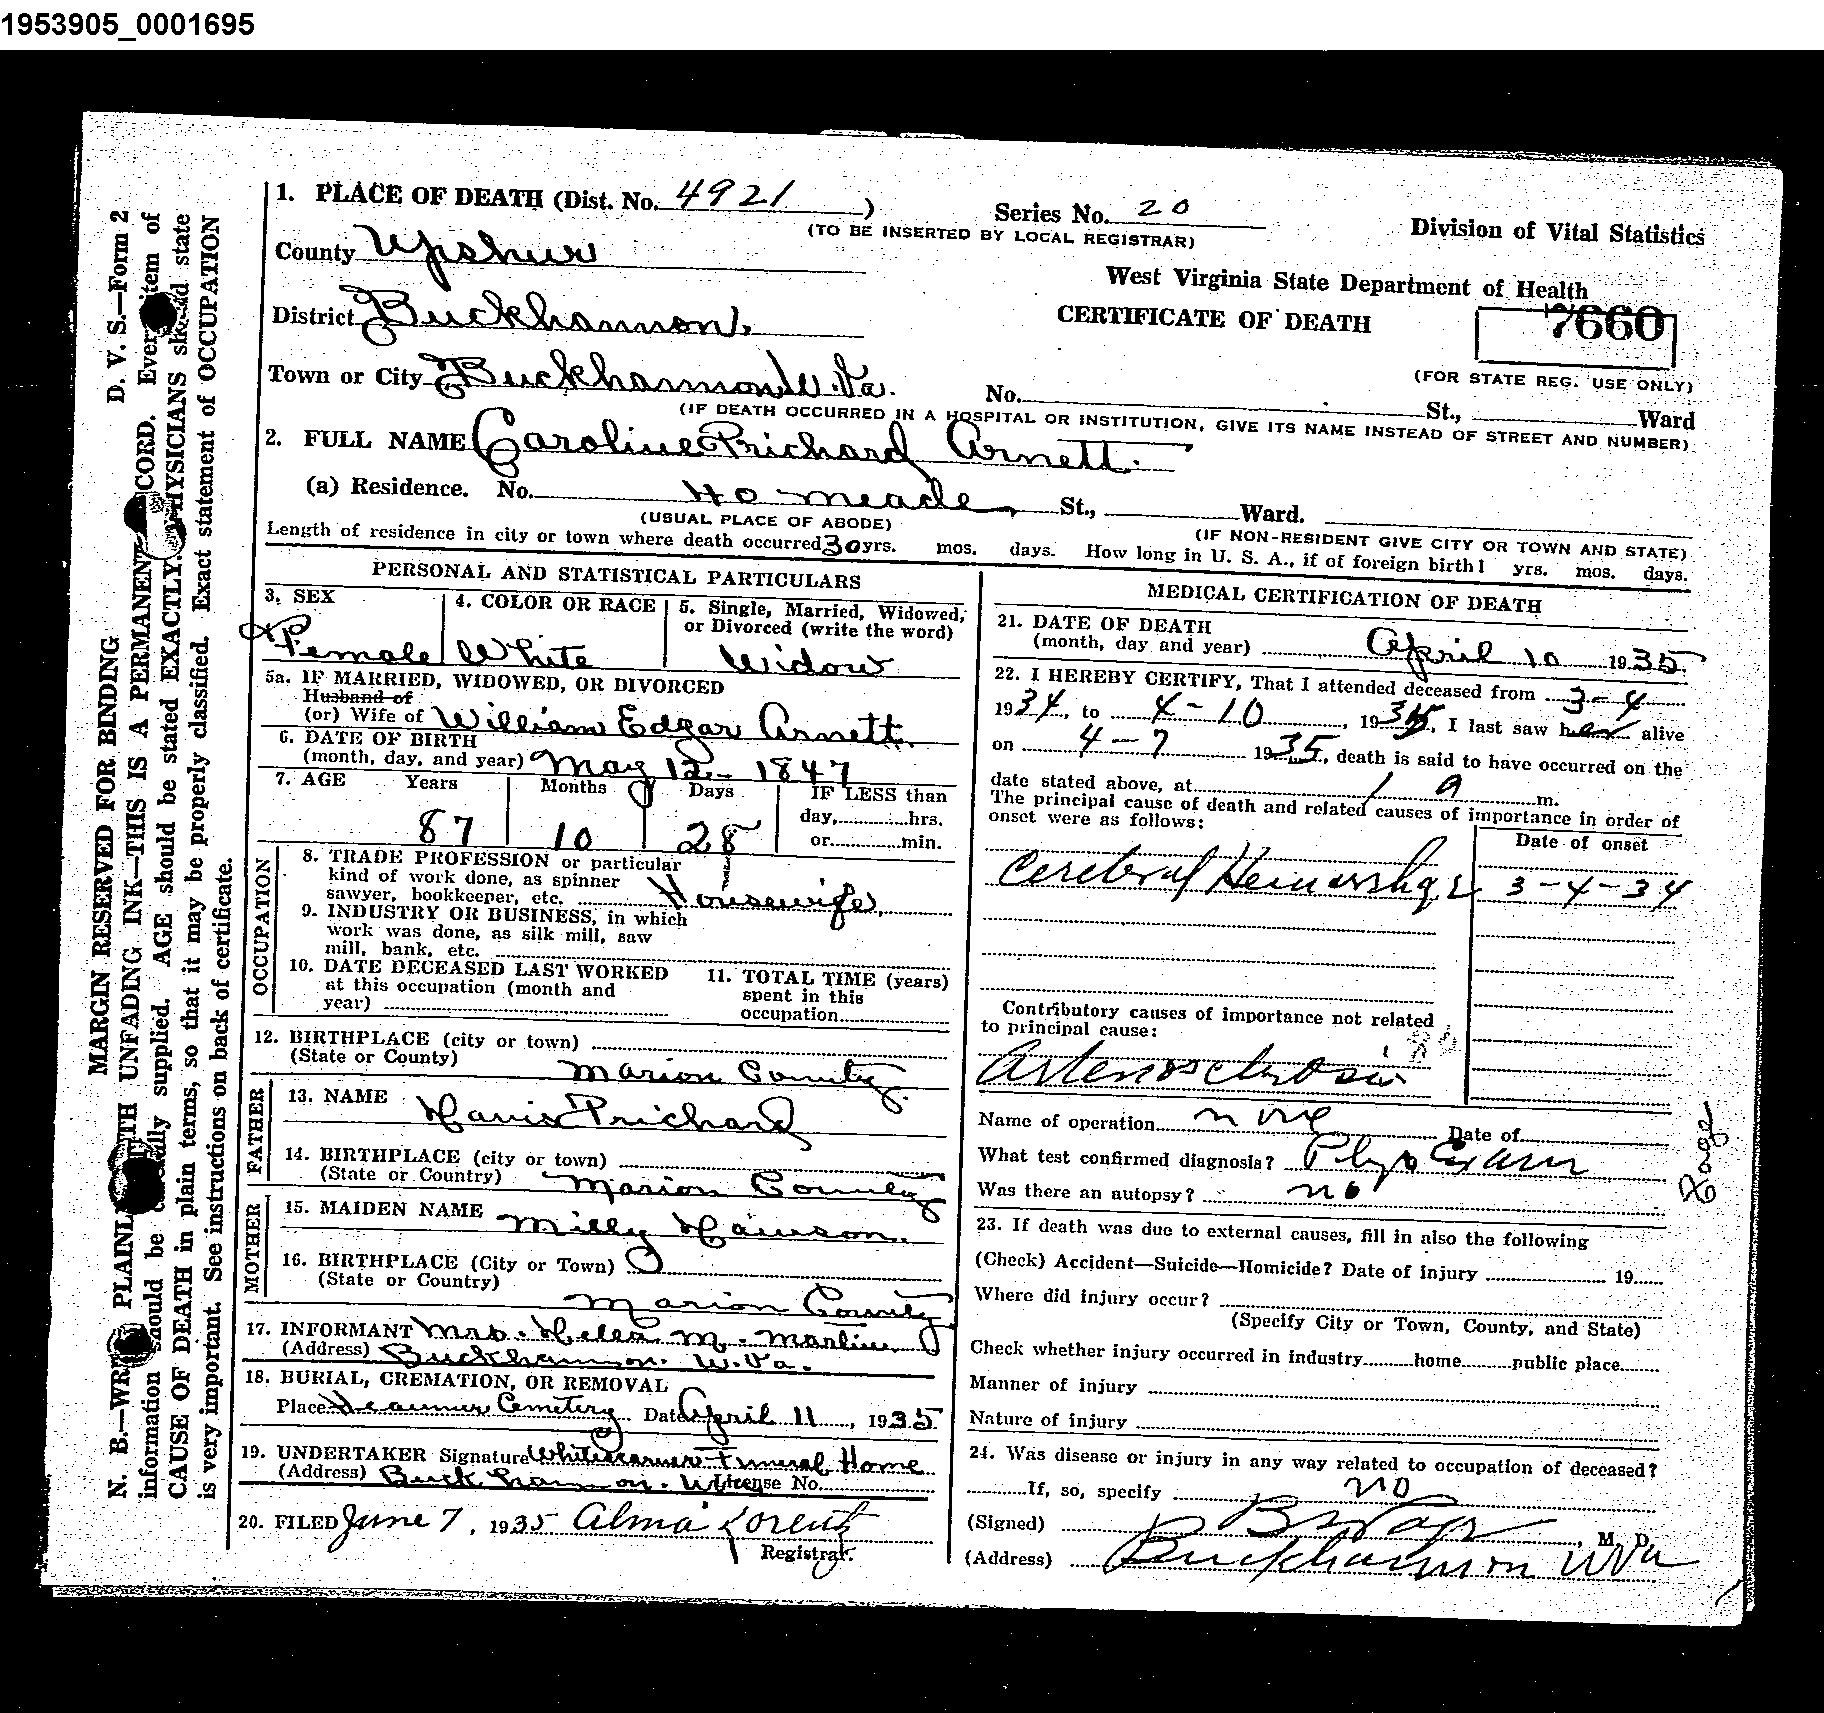 1953905_0001695
D. V. S.—Form 2
MARGIN RESERVED FOR BINDING
N. B.—WRITE PLAINLY WITH UNFADING INK—THIS IS A PERMANENT RECORD. Every item of
information should be carefully supplied. AGE should be stated EXACTLY. PHYSICIANS should state
CAUSE OF DEATH in plain terms, so that it may be properly classified. Exact statement of OCCUPATION
is very important. See instructions on back of certificate.
1. PLACE OF DEATH (Dist. No. 4921 )
Series No. 20
(TO BE INSERTED BY LOCAL REGISTRAR)
Division of Vital Statistics
County Upshur
West Virginia State Department of Health
District Buckhannon
CERTIFICATE OF DEATH
7660
(FOR STATE REG. USE ONLY)
Town or City Buckhannon W. Va. No. St., Ward
(IF DEATH OCCURRED IN A HOSPITAL OR INSTITUTION, GIVE ITS NAME INSTEAD OF STREET AND NUMBER)
2. FULL NAME Caroline Prichard Arnett.
(a) Residence. No. 40 Meade St., Ward.
(USUAL PLACE OF ABODE) (IF NON-RESIDENT GIVE CITY OR TOWN AND STATE)
Length of residence in city or town where death occurred 30 yrs. mos. days. How long in U. S. A., if of foreign birth? yrs. mos. days.
PERSONAL AND STATISTICAL PARTICULARS
3. SEX 4. COLOR OR RACE 5. Single, Married, Widowed, or Divorced (write the word)
Female White Widow
5a. IF MARRIED, WIDOWED, OR DIVORCED
Husband of
(or) Wife of William Edgar Arnett.
6. DATE OF BIRTH
(month, day, and year) May 12 - 1847
7. AGE Years Months Days IF LESS than
day, hrs.
87 10 28 or min.
OCCUPATION
8. TRADE PROFESSION or particular
kind of work done, as spinner
sawyer, bookkeeper, etc. Housewife
9. INDUSTRY OR BUSINESS, in which
work was done, as silk mill, saw
mill, bank, etc.
10. DATE DECEASED LAST WORKED
at this occupation (month and
year)
11. TOTAL TIME (years)
spent in this
occupation
12. BIRTHPLACE (city or town)
(State or County) Marion County
FATHER
13. NAME Prichard
14. BIRTHPLACE (city or town)
(State or Country) Marion County
MOTHER
15. MAIDEN NAME Milly
16. BIRTHPLACE (City or Town)
(State or Country)
Marion County
17. INFORMANT Mrs. Helen M.
(Address) Buckhannon. W. Va.
18. BURIAL, CREMATION, OR REMOVAL
Place Heavner Cemetery Date April 11, 1935
19. UNDERTAKER Signature Funeral Home
(Address) Buckhannon. W. Va. License No.
20. FILED June 7, 1935 Alma Lorentz
Registrar.
MEDICAL CERTIFICATION OF DEATH
21. DATE OF DEATH
(month, day and year) April 10 1935
22. I HEREBY CERTIFY, That I attended deceased from 3-4
1934, to 4-10, 1935, I last saw her alive
on 4-7 1935, death is said to have occurred on the
date stated above, at 1 a m.
The principal cause of death and related causes of importance in order of
onset were as follows:
Date of onset
Cerebral Hemorrhage 3-4-34
Contributory causes of importance not related
to principal cause:
Arteriosclerosis
Name of operation none Date of
What test confirmed diagnosis? Phys Exam
Was there an autopsy? no
23. If death was due to external causes, fill in also the following
(Check) Accident—Suicide—Homicide? Date of injury 19
Where did injury occur?
(Specify City or Town, County, and State)
Check whether injury occurred in industry home public place
Manner of injury
Nature of injury
24. Was disease or injury in any way related to occupation of deceased?
If, so, specify no
(Signed) , M. D.
(Address) Buckhannon W Va